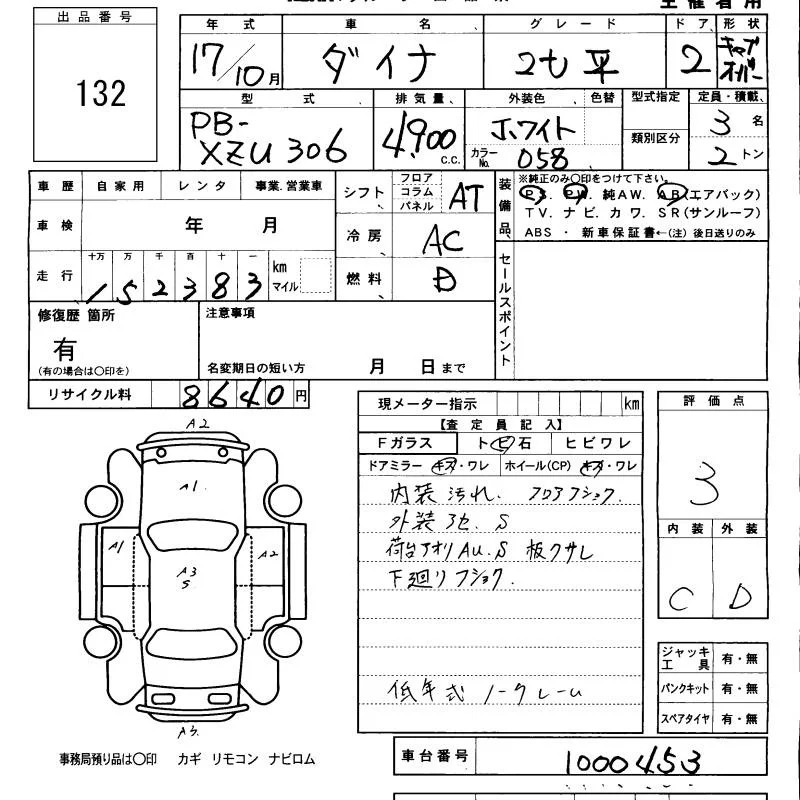 主催者用
出品番号
132
年式 車名 グレード ドア 形状
17/10月 ダイナ 2t 平 2 キャブオーバー
型式 排気量 外装色 色替 型式指定 定員・積載
PB-XZU306 4,900 c.c. ホワイト 類別区分 3名
カラーNo. 058 2トン
車歴 自家用 レンタ 事業.営業車
車検 年 月
走行 十万 万 千 百 十 一 km マイル
152383
シフト フロア コラム パネル AT
冷房 AC
燃料 D
装備品 ※純正のみ○印をつけて下さい。
P.S. P.W. 純AW. AB(エアバック)
TV. ナビ. カワ. SR(サンルーフ)
ABS ・ 新車保証書←(注) 後日送りのみ
セールスポイント
修復歴 箇所
有
(有の場合は○印を)
注意事項
名変期日の短い方 月 日まで
リサイクル料 8640円
現メーター指示 km
【査定員記入】
Fガラス トビ石 ヒビワレ
ドアミラー キズ・ワレ ホイール(CP) キズ・ワレ
内装 汚れ. フロアフショク.
外装 3色. S
荷台アオリ AU.S 板クサレ
下廻りフショク.
低年式 ノークレーム
評価点
3
内装 外装
C D
A2
A1
A1
A2
A3
S
A3
ジャッキ工具 有・無
パンクキット 有・無
スペアタイヤ 有・無
事務局預り品は○印 カギ リモコン ナビロム
車台番号 1000453